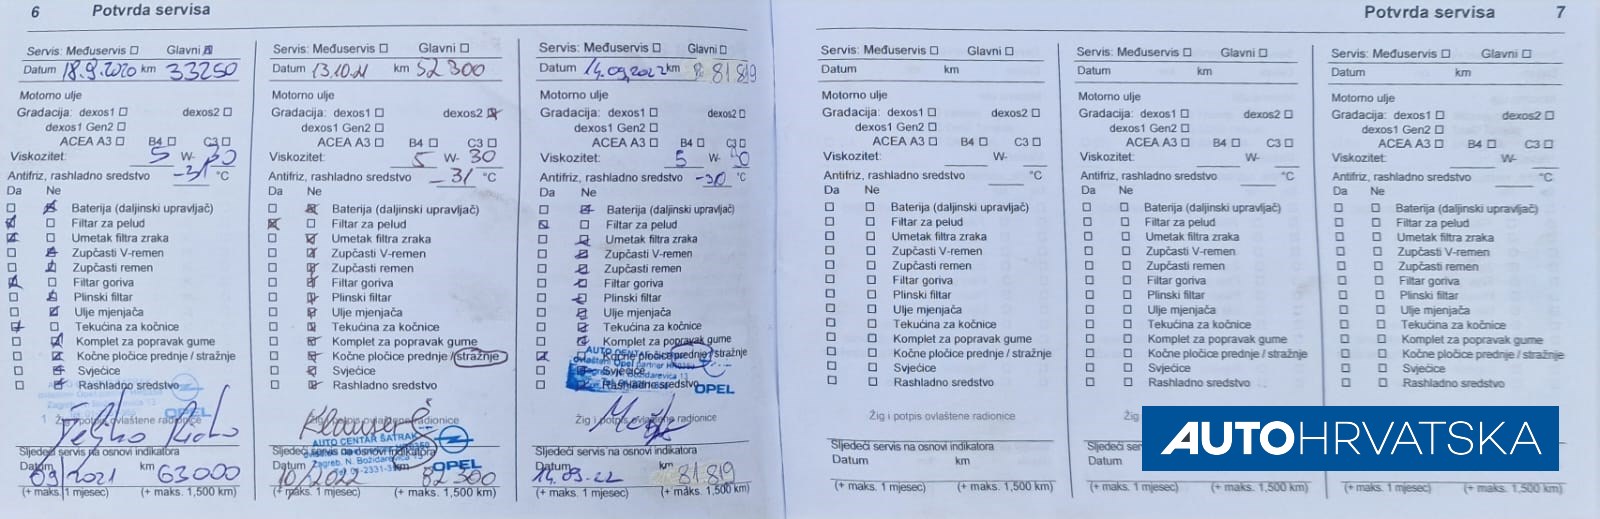 6 Potvrda servisa
Servis: Međuservis Glavni
Datum 18.9.2020 km 33250
Motorno ulje
Gradacija: dexos1 dexos2
dexos1 Gen2
ACEA A3 B4 C3
Viskozitet: 5 W- 30
Antifriz, rashladno sredstvo -31 °C
Da Ne
Baterija (daljinski upravljač)
Filtar za pelud
Umetak filtra zraka
Zupčasti V-remen
Zupčasti remen
Filtar goriva
Plinski filtar
Ulje mjenjača
Tekućina za kočnice
Komplet za popravak gume
Kočne pločice prednje / stražnje
Svjećice
Rashladno sredstvo
OPEL
Žig i potpis ovlaštene radionice
Sljedeći servis na osnovi indikatora
Datum 09/2021 km 63000
(+ maks. 1 mjesec) (+ maks. 1,500 km)
Servis: Međuservis Glavni
Datum 13.10.21 km 52300
Motorno ulje
Gradacija: dexos1 dexos2
dexos1 Gen2
ACEA A3 B4 C3
Viskozitet: 5 W- 30
Antifriz, rashladno sredstvo -31 °C
Da Ne
Baterija (daljinski upravljač)
Filtar za pelud
Umetak filtra zraka
Zupčasti V-remen
Zupčasti remen
Filtar goriva
Plinski filtar
Ulje mjenjača
Tekućina za kočnice
Komplet za popravak gume
Kočne pločice prednje / stražnje
Svjećice
Rashladno sredstvo
Žig i potpis ovlaštene radionice
AUTO CENTAR ŠATRAK
Zagreb, N. Božidarevića 13
OPEL
Sljedeći servis na osnovi indikatora
Datum 10/2022 km 82300
(+ maks. 1 mjesec) (+ maks. 1,500 km)
Servis: Međuservis Glavni
Datum 14.09.2022 km 81819
Motorno ulje
Gradacija: dexos1 dexos2
dexos1 Gen2
ACEA A3 B4 C3
Viskozitet: 5 W- 30
Antifriz, rashladno sredstvo -30 °C
Da Ne
Baterija (daljinski upravljač)
Filtar za pelud
Umetak filtra zraka
Zupčasti V-remen
Zupčasti remen
Filtar goriva
Plinski filtar
Ulje mjenjača
Tekućina za kočnice
Komplet za popravak gume
AUTO CENTAR
Kočne pločice prednje / stražnje
Svjećice
Rashladno sredstvo
OPEL
Žig i potpis ovlaštene radionice
Sljedeći servis na osnovi indikatora
Datum 14.09.22 km 81.819
(+ maks. 1 mjesec) (+ maks. 1,500 km)
Potvrda servisa 7
Servis: Međuservis Glavni
Datum km
Motorno ulje
Gradacija: dexos1 dexos2
dexos1 Gen2
ACEA A3 B4 C3
Viskozitet: W-
Antifriz, rashladno sredstvo °C
Da Ne
Baterija (daljinski upravljač)
Filtar za pelud
Umetak filtra zraka
Zupčasti V-remen
Zupčasti remen
Filtar goriva
Plinski filtar
Ulje mjenjača
Tekućina za kočnice
Komplet za popravak gume
Kočne pločice prednje / stražnje
Svjećice
Rashladno sredstvo
Žig i potpis ovlaštene radionice
Sljedeći servis na osnovi indikatora
Datum km
(+ maks. 1 mjesec) (+ maks. 1,500 km)
Servis: Međuservis Glavni
Datum km
Motorno ulje
Gradacija: dexos1 dexos2
dexos1 Gen2
ACEA A3 B4 C3
Viskozitet: W-
Antifriz, rashladno sredstvo °C
Da Ne
Baterija (daljinski upravljač)
Filtar za pelud
Umetak filtra zraka
Zupčasti V-remen
Zupčasti remen
Filtar goriva
Plinski filtar
Ulje mjenjača
Tekućina za kočnice
Komplet za popravak gume
Kočne pločice prednje / stražnje
Svjećice
Rashladno sredstvo
Žig
(+ maks. 1 mjesec) (+ maks. 1,500 km)
Servis: Međuservis Glavni
Datum km
Motorno ulje
Gradacija: dexos1 dexos2
dexos1 Gen2
ACEA A3 B4 C3
Viskozitet: W-
Antifriz, rashladno sredstvo °C
Da Ne
Baterija (daljinski upravljač)
Filtar za pelud
Umetak filtra zraka
Zupčasti V-remen
Zupčasti remen
Filtar goriva
Plinski filtar
Ulje mjenjača
Tekućina za kočnice
Komplet za popravak gume
Kočne pločice prednje / stražnje
Svjećice
Rashladno sredstvo
(+ maks. 1 mjesec) (+ maks. 1,500 km)
AUTOHRVATSKA